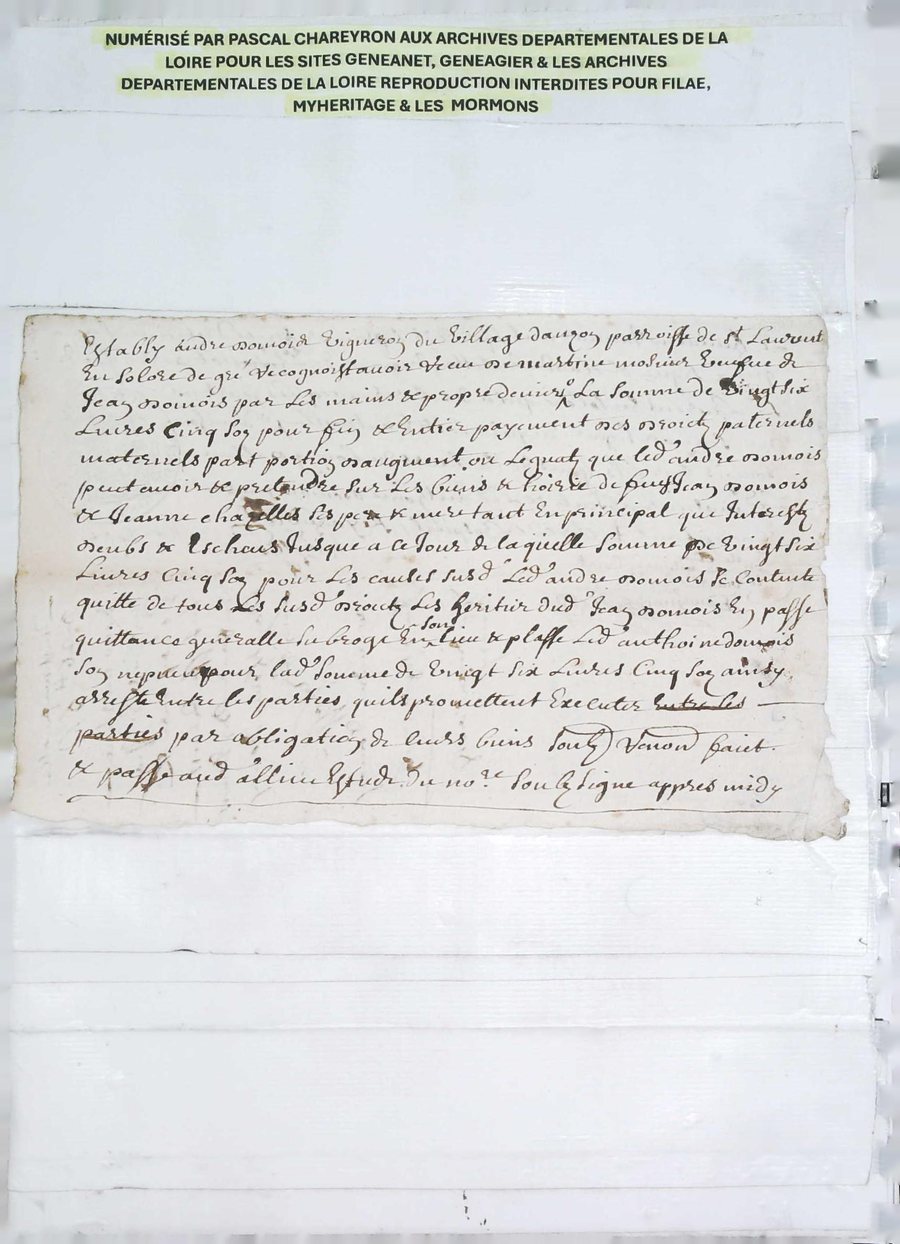 NUMÉRISÉ PAR PASCAL CHAREYRON AUX ARCHIVES DEPARTEMENTALES DE LA
LOIRE POUR LES SITES GENEANET, GENEAGIER & LES ARCHIVES
DEPARTEMENTALES DE LA LOIRE REPRODUCTION INTERDITES POUR FILAE,
MYHERITAGE & LES MORMONS
Estably andre domois Vigneron du Village dauzon parroisse de st Laurent
En Solore de gré recognoist avoir receu de martine mosnier Veufve de
Jean domois par Les mains & propre deniers La somme de Vingt six
Livres Cinq soz pour fin & Entier payement des droictz paternels
maternels part portion daugment ou Leguatz que led andre domois
peut avoir & pretendre sur Les biens & hoirie de Jean domois
& Jeanne chazelles ses pere & mere tant En principal que Interestz
deubs & Escheus Jusque a ce Jour de laquelle somme de Vingt six
Livres Cinq soz pour Les causes susd Led andre domois se Contente
quitte de tous Les susd droictz Les heritier dud Jean domois En passe
quittance generalle subroge En son lieu & plasse Led anthoine domois
son nepveu pour lad somme de Vingt six Livres Cinq soz ainsy
arreste Entre les parties quils promettent Executer Entre les
parties par obligation de leurs biens soubz Renon faict
& passe aud Estude du nore soubzsigne appres midy